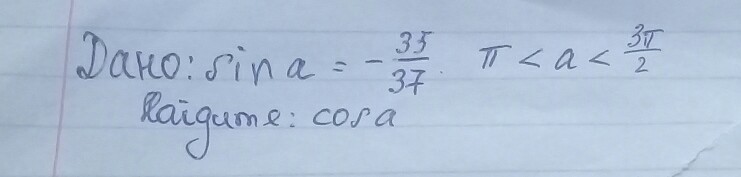 Дано: sin a = -35/37. π < a < 3π/2
Найдите: cos a